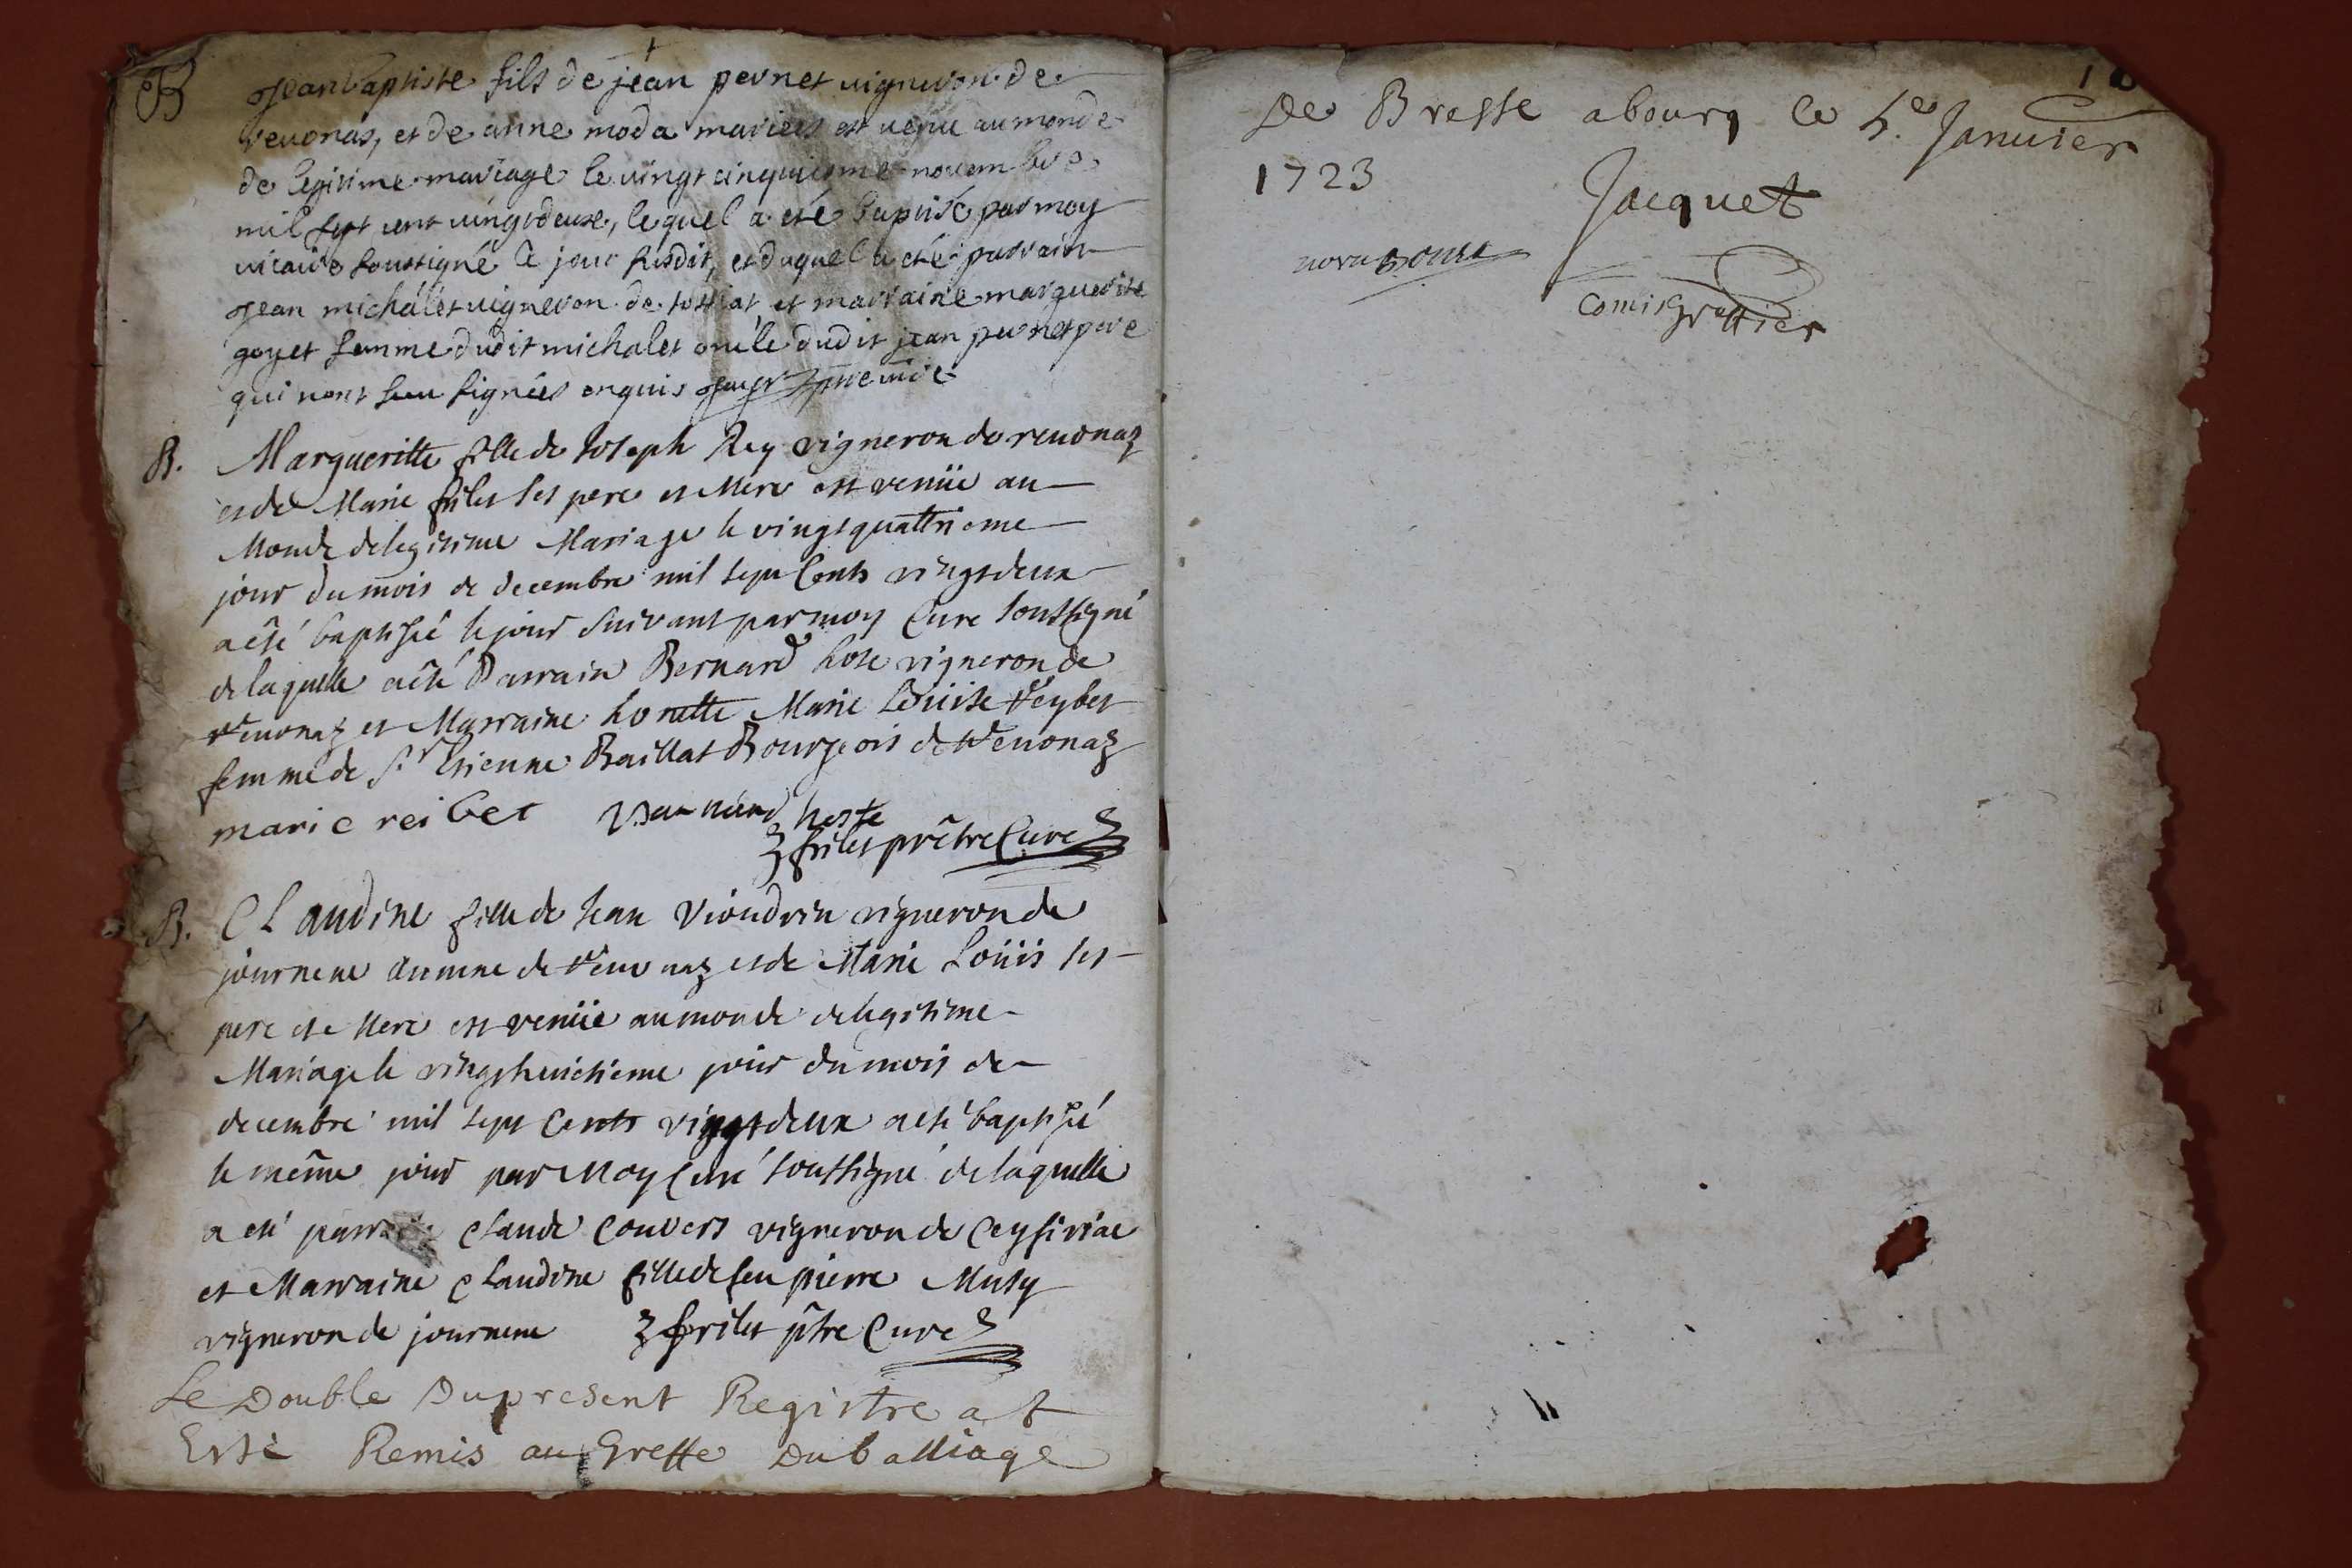 B jeanbaptiste fils de jean pernet vigneron de
revonas, et de anne moda mariees est venu au monde
de legitime mariage le vingt cinquiesme novembre
mil sept cent vingtdeux, lequel a eté baptisé par moy
vicaire soussigné le jour susdit, et duquel a eté parrain
jean michalet vigneron de tossiat et marraine marguerite
goyet femme dudit michalet oncle dudit jean pernet pere
qui nont sceu signées enquis
B. Margueritte fille de Joseph Rey vigneron de revonaz
et de Marie frilet ses pere et Mere est venüe au
Monde de legitime Mariage le vingtquattrieme
jour du mois de decembre mil sept Cents vingtdeux
a été baptisée le jour suivant par moy Curé soussigné
de laquelle a été Parrain Bernard hoste vigneron de
revonaz et Marraine honette Marie Loüise reybet
femme de Sr Etienne Baillat Bourgeois de revonaz
marie reibet bernard hoste
frilet prêtre Curé
B. CLaudine fille de Jean Vioudrin vigneron de
journene annexe de revonaz et de Marie Loüis ses
pere et Mere est venüe au monde de legitime
Mariage le vingthuictieme jour du mois de
decembre mil sept Cents vingtdeux a eté baptisée
le même jour par Moy Curé soussigné de laquelle
a eté parrain Claude Convers vigneron de Ceysiriat
et Marraine Claudine fille de feu pierre Musy
vigneron de journene frilet ptre Curé
Le Double Du present Registre at
Esté Remis au Greffe Du balliage
10
De Bresse a bourg le 5.e Januier
1723 Jacquet
Comis greffier